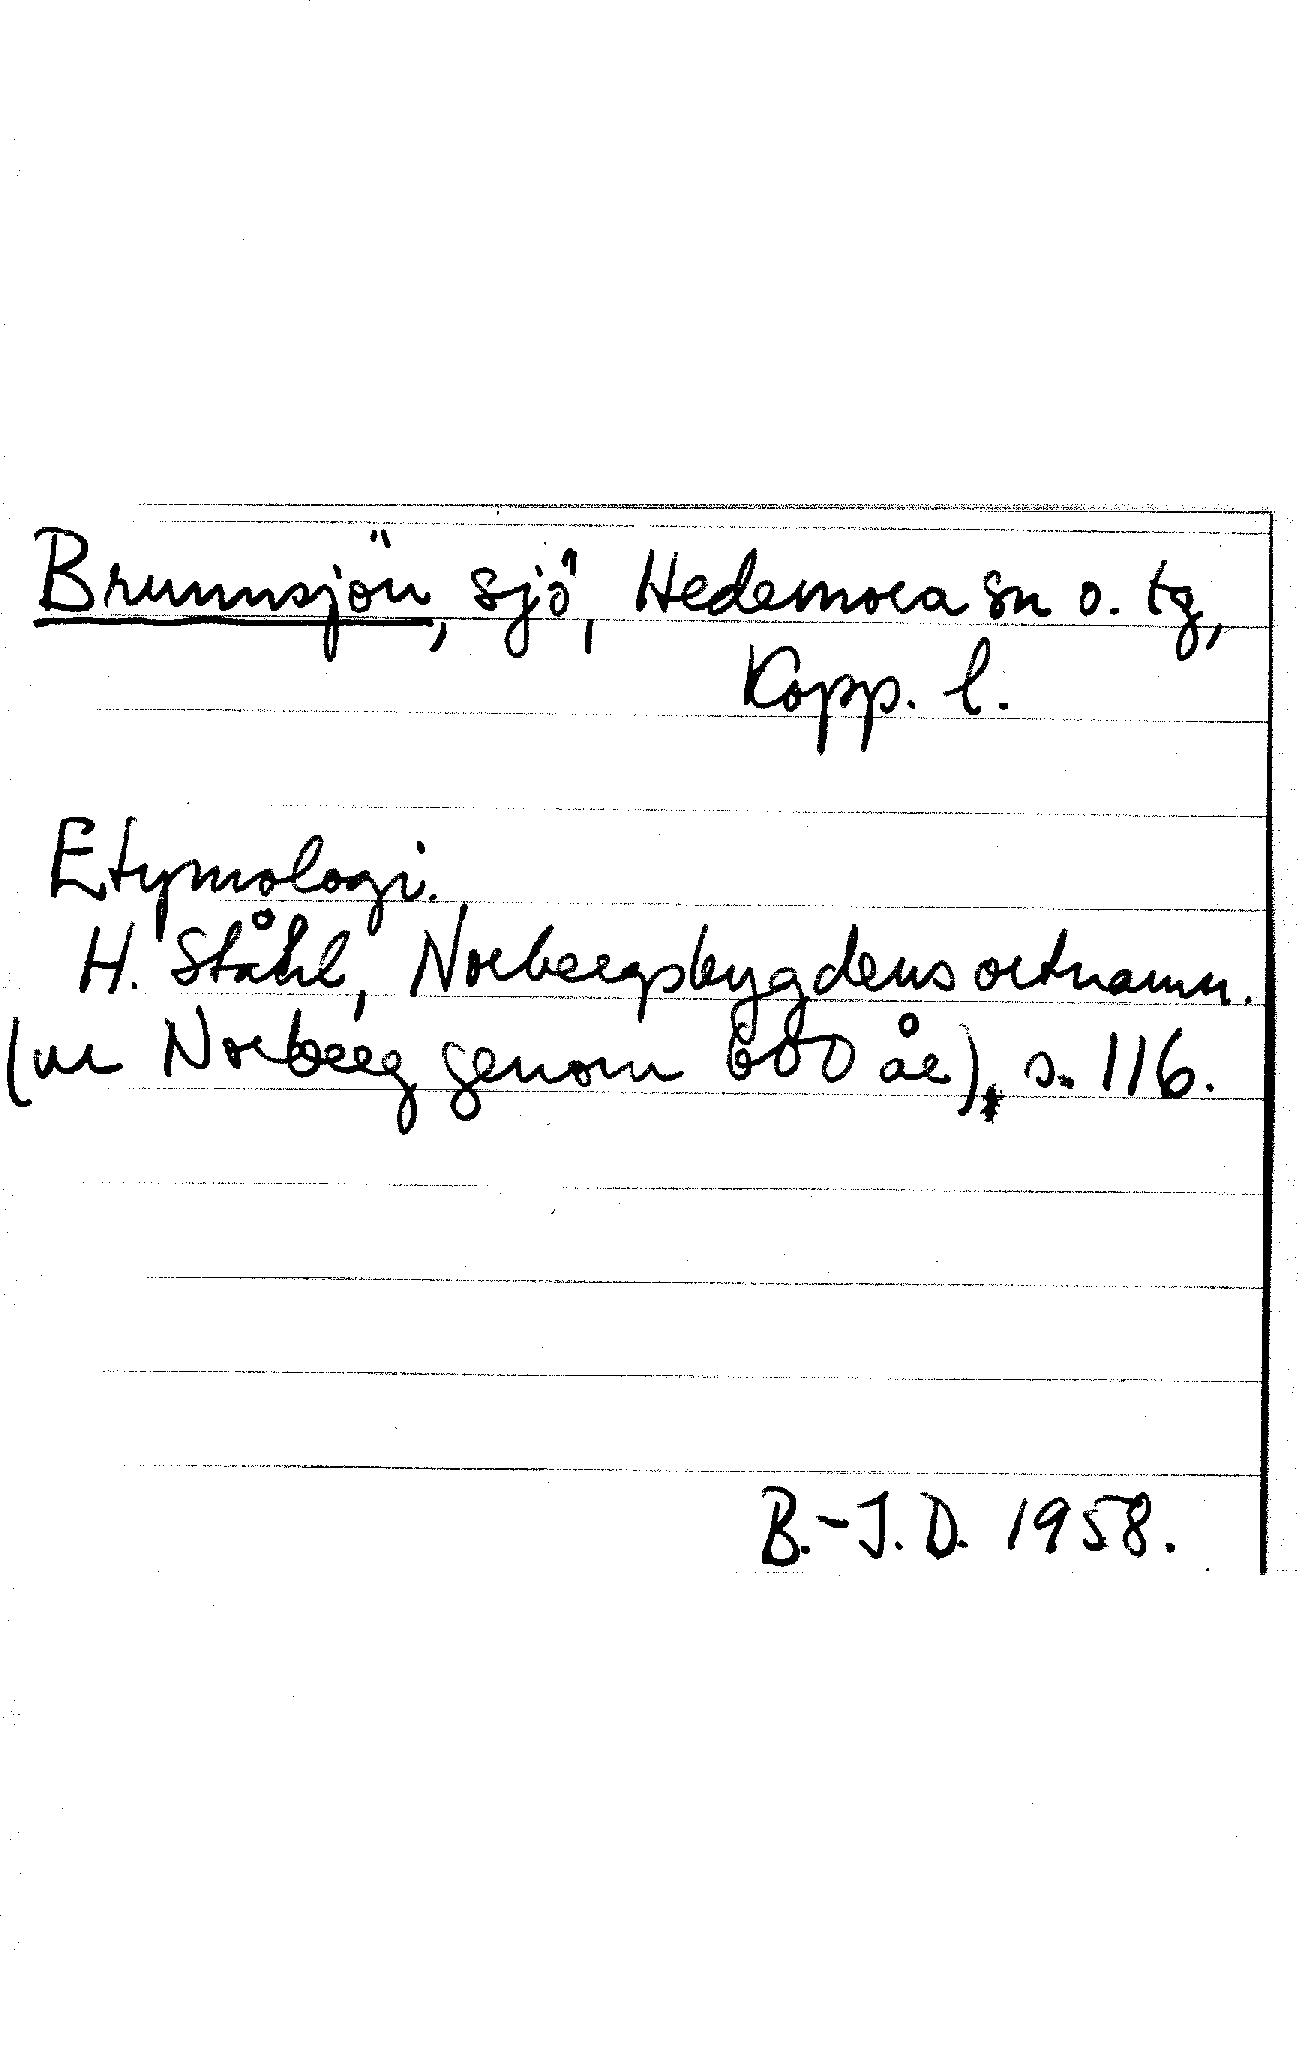 Brunnsjön, sjö, Hedemora sn o. tg,
Kopp. l.
Etymologi.
H. Ståhl, Norbergsbygdens ortnamn.
(ur Norberg genom 600 år), s. 116.
B.-J.D. 1958.